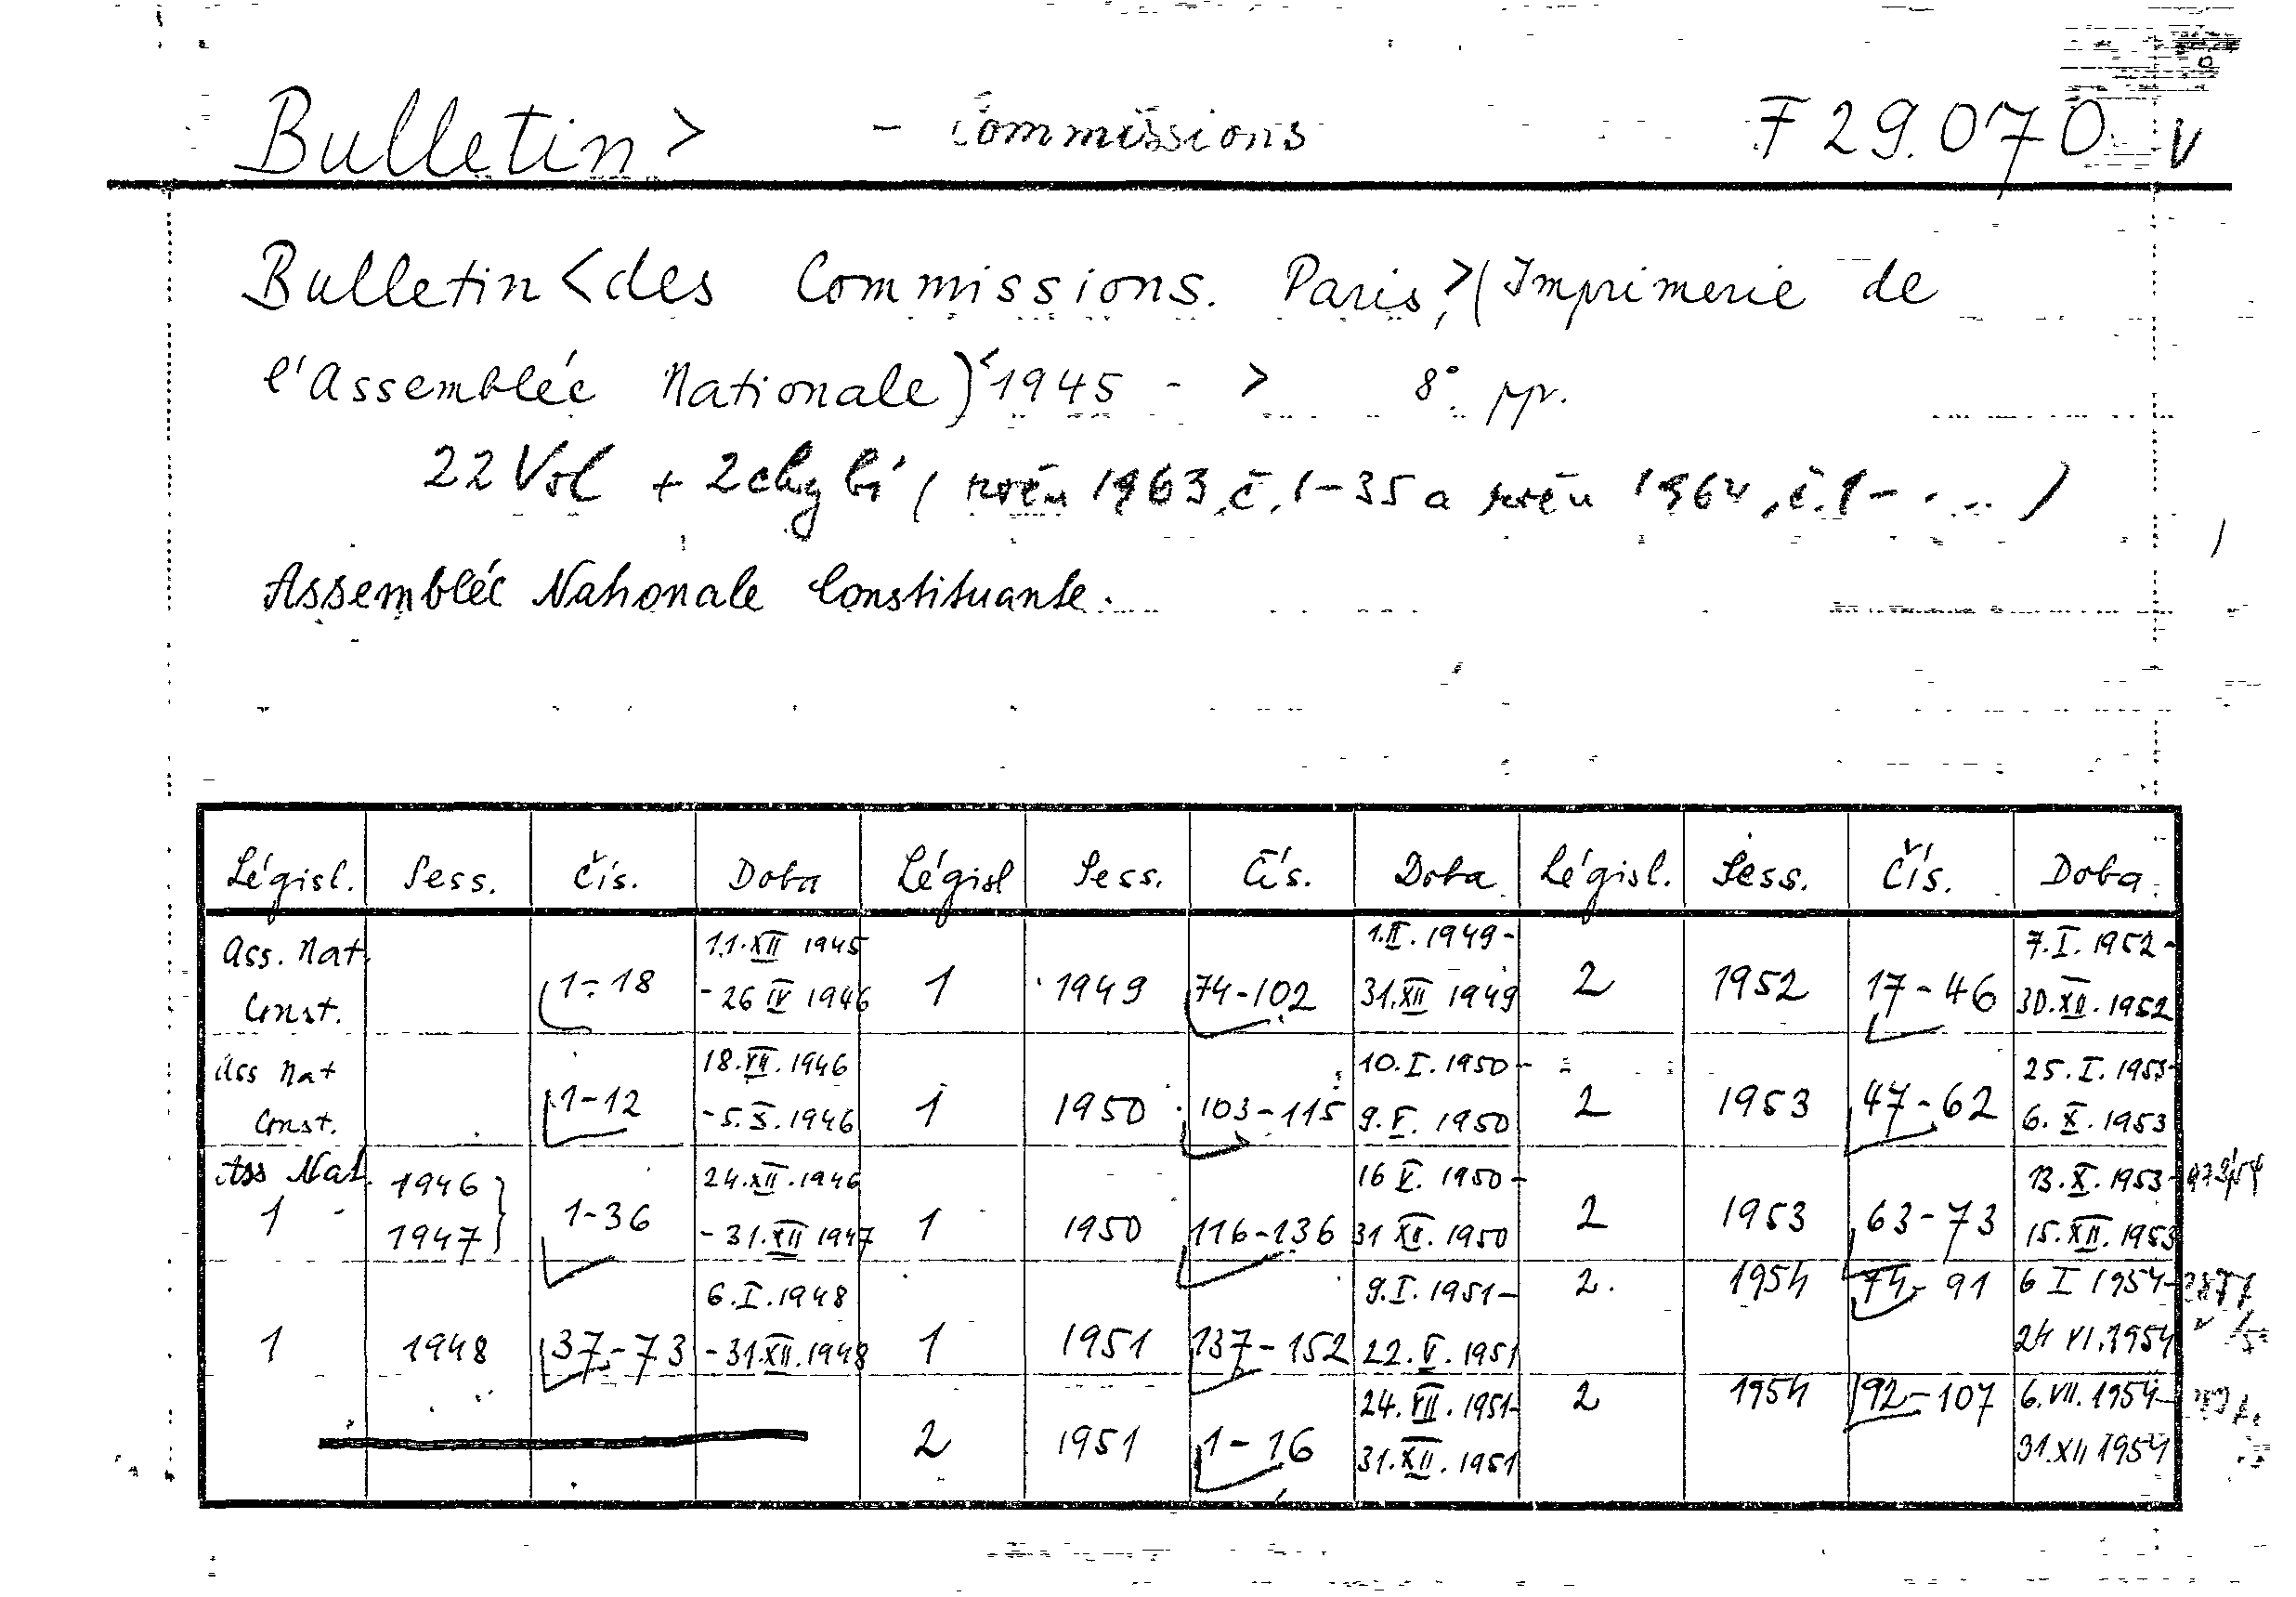 Bulletin> - Commissions F 29.070 V
Bulletin <des Commissions. Paris,> (Imprimerie de
l'Assemblée Nationale) <1945 - > 8° pp.
22 Vol + 2 chybí ( 1963, č. 1-35 a 1964, č. 1- ... )
Assemblée Nationale Constituante.
Législ. Sess. Čís. Doba Législ Sess. Čís. Doba Législ. Sess. Čís. Doba
Ass. Nat. Const. 1-18 11.XII 1945 - 26 IV 1946 1 1949 74-102 1.II.1949- 31.XII 1949 2 1952 17-46 7.I.1952- 30.XII.1952
Ass Nat Const. 1-12 18.VII.1946 - 5.X.1946 1 1950 103-115 10.I.1950- 9.V.1950 2 1953 47-62 25.I.1953- 6.X.1953
Ass Nat. 1 1946 1947 } 1-36 24.XII.1946 - 31.XII 1947 1 1950 116-136 16 V. 1950- 31 XII.1950 2 1953 63-73 13.X.1953- 15.XII.1953
1 1948 37-73 6.I.1948 - 31.XII.1948 1 1951 137-152 9.I.1951- 22.V.1951 2. 1954 74-91 6 I 1954- 24 VI.1954
2 1951 1-16 24.VII.1951- 31.XII.1951 2 1954 92-107 6.VII.1954- 31.XII 1954